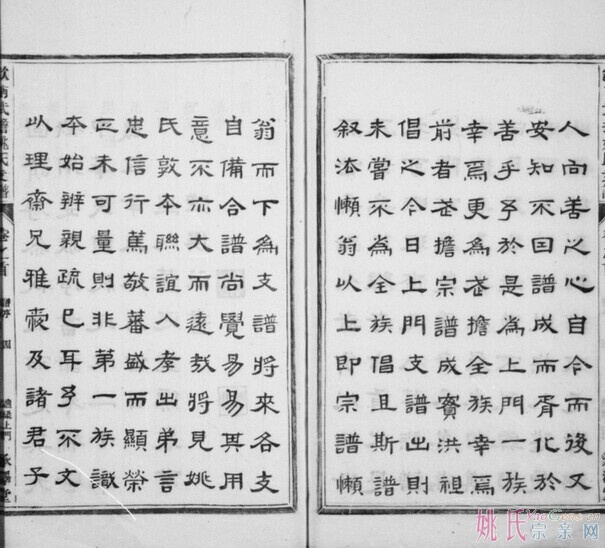 人向善之心自今而後又
安知不因譜成而胥化於
善乎予於是爲上門一族
幸焉更爲武擔全族幸焉
前者武擔宗譜成實洪祖
倡之今日上門支譜出則
未嘗不爲全族倡且斯譜
叙法懶翁以上即宗譜懶
翁而下爲支譜將來各支
自備合譜尚覺易易其用
意不亦大而遠哉將見姚
氏敦本聯誼入孝出弟言
忠信行篤敬蕃盛而顯榮
正未可量則非第一族識
本始辨親疏已耳予不文
以理齋兄雅意及諸君子
卷之首
譜序
四
姚氏宗亲网